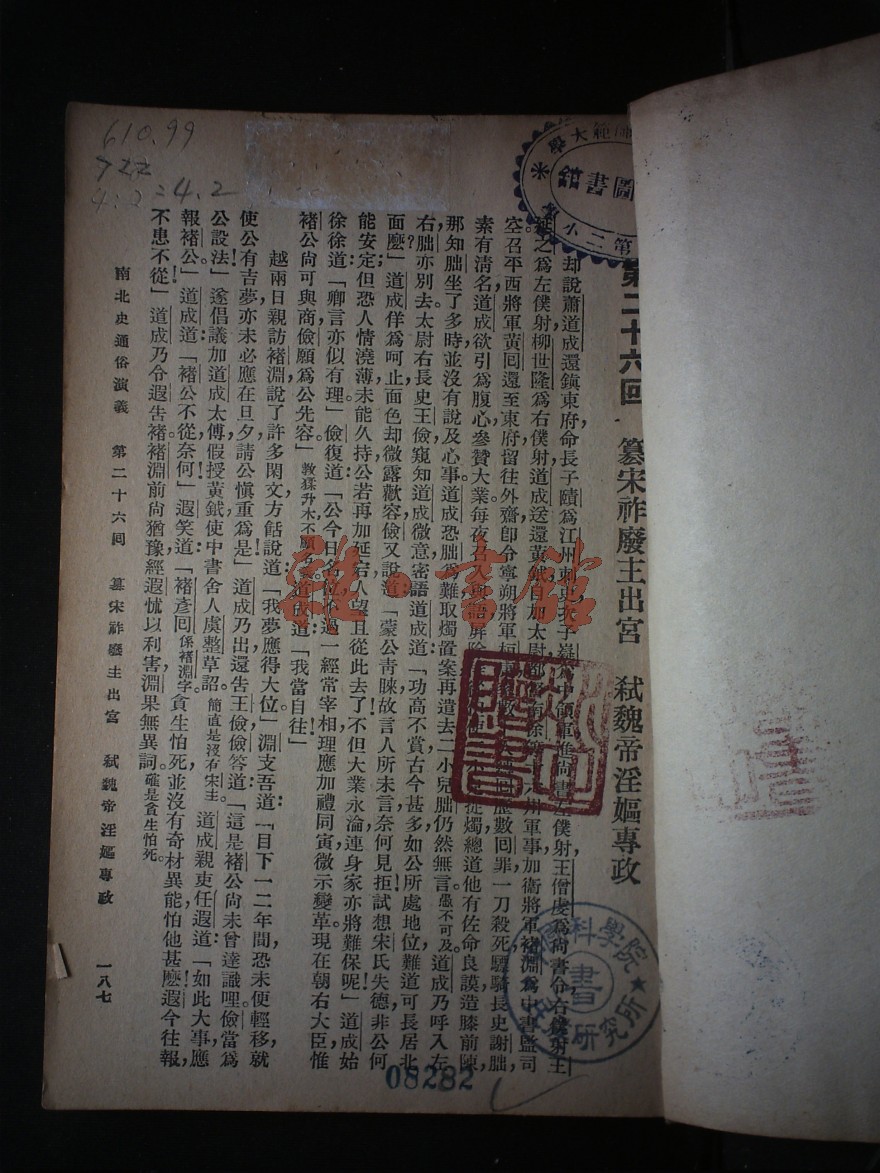 第二十六回 篡宋祚廢主出宮 弒魏帝淫嫗專政
却說蕭道成還鎮東府,命長子賾爲江州刺史,次子嶷爲中領軍,進尚書左僕射王僧虔爲尚書令,右僕射王
延之爲左僕射,柳世隆爲右僕射,道成送還黃鉞,自加太尉,都督南徐等十六州軍事,加衛將軍褚淵爲中書監司
空。召平西將軍黃回還至東府,留住外齋,卽令寧朔將軍桓 數 回罪,一刀殺死。驃騎長史謝朏,
素有淸名,道成欲引爲腹心,參贊大業,每夜召入與語,屏除 捉燭,總道他有佐命良謨,造膝前陳,
那知朏坐了多時,並沒有說及心事。道成恐朏爲難,取燭置案,再遣去二小兒,朏仍然無言。愚不可及。道成乃呼入左
右,朏亦別去。太尉右長史王儉窺知道成微意,密語道成道:「功高不賞,古今甚多,如公所處地位,難道可長居北
面麼?」道成佯爲呵止,面色却微露歡容。儉又說道:「蒙公靑睞,故言人所未言,奈何見拒?試想宋氏失德,非公何
能安定?但恐人情澆薄,未能久持,公若再加延宕,人望且從此去了!不但大業永淪,連身家亦將難保呢!」道成始
徐徐道:「卿言亦似有理。」儉復道:「公今日名位,不過一經常宰相,理應加禮同寅,微示變革。現在朝右大臣,惟
褚公尚可與商,儉願爲公先容。」敎猱升木不顧 道成道:「我當自往!」
越兩日,親訪褚淵,說了許多閑文,方餂說道:「我夢應得大位。」淵支吾道:「目下一二年間,恐未便輕移,就
使公有吉夢,亦未必應在旦夕,請公愼重爲是!」道成乃出,還告王儉,儉答道:「這是褚公尚未曾達識哩,儉當爲
公設法!」遂倡議加道成太傅,假授黃鉞,使中書舍人虞整草詔。簡直是沒有宋主。道成親吏任遐道:「如此大事,應
報褚公!」道成道:「褚公不從奈何?」遐笑道:「褚彥回係褚淵字貪生怕死,並沒有奇材異能,怕他甚麼!遐今往報,
不患不從!」道成乃令遐告褚,褚淵前尚猶豫,經遐怵以利害,淵果無異詞。確是貪生怕死。
南北史通俗演義 第二十六回 篡宋祚廢主出宮 弒魏帝淫嫗專政 一八七
610.99
4:2=4.2
圖書館
第二
科學院
書
研究所
08282
雅書館